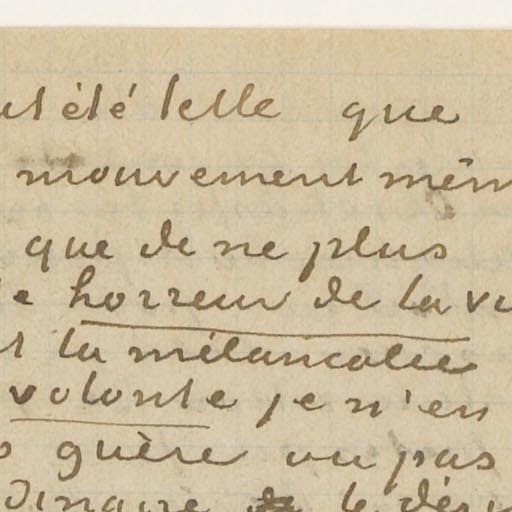 été telle que
mouvement mêm
que de ne plus
horreur de la vi
la mélancolie
volonté je n'en
guère ou pas
le dési